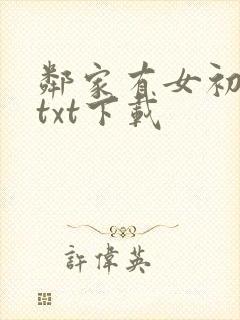 鄰家有女初
txt下載
許偉英